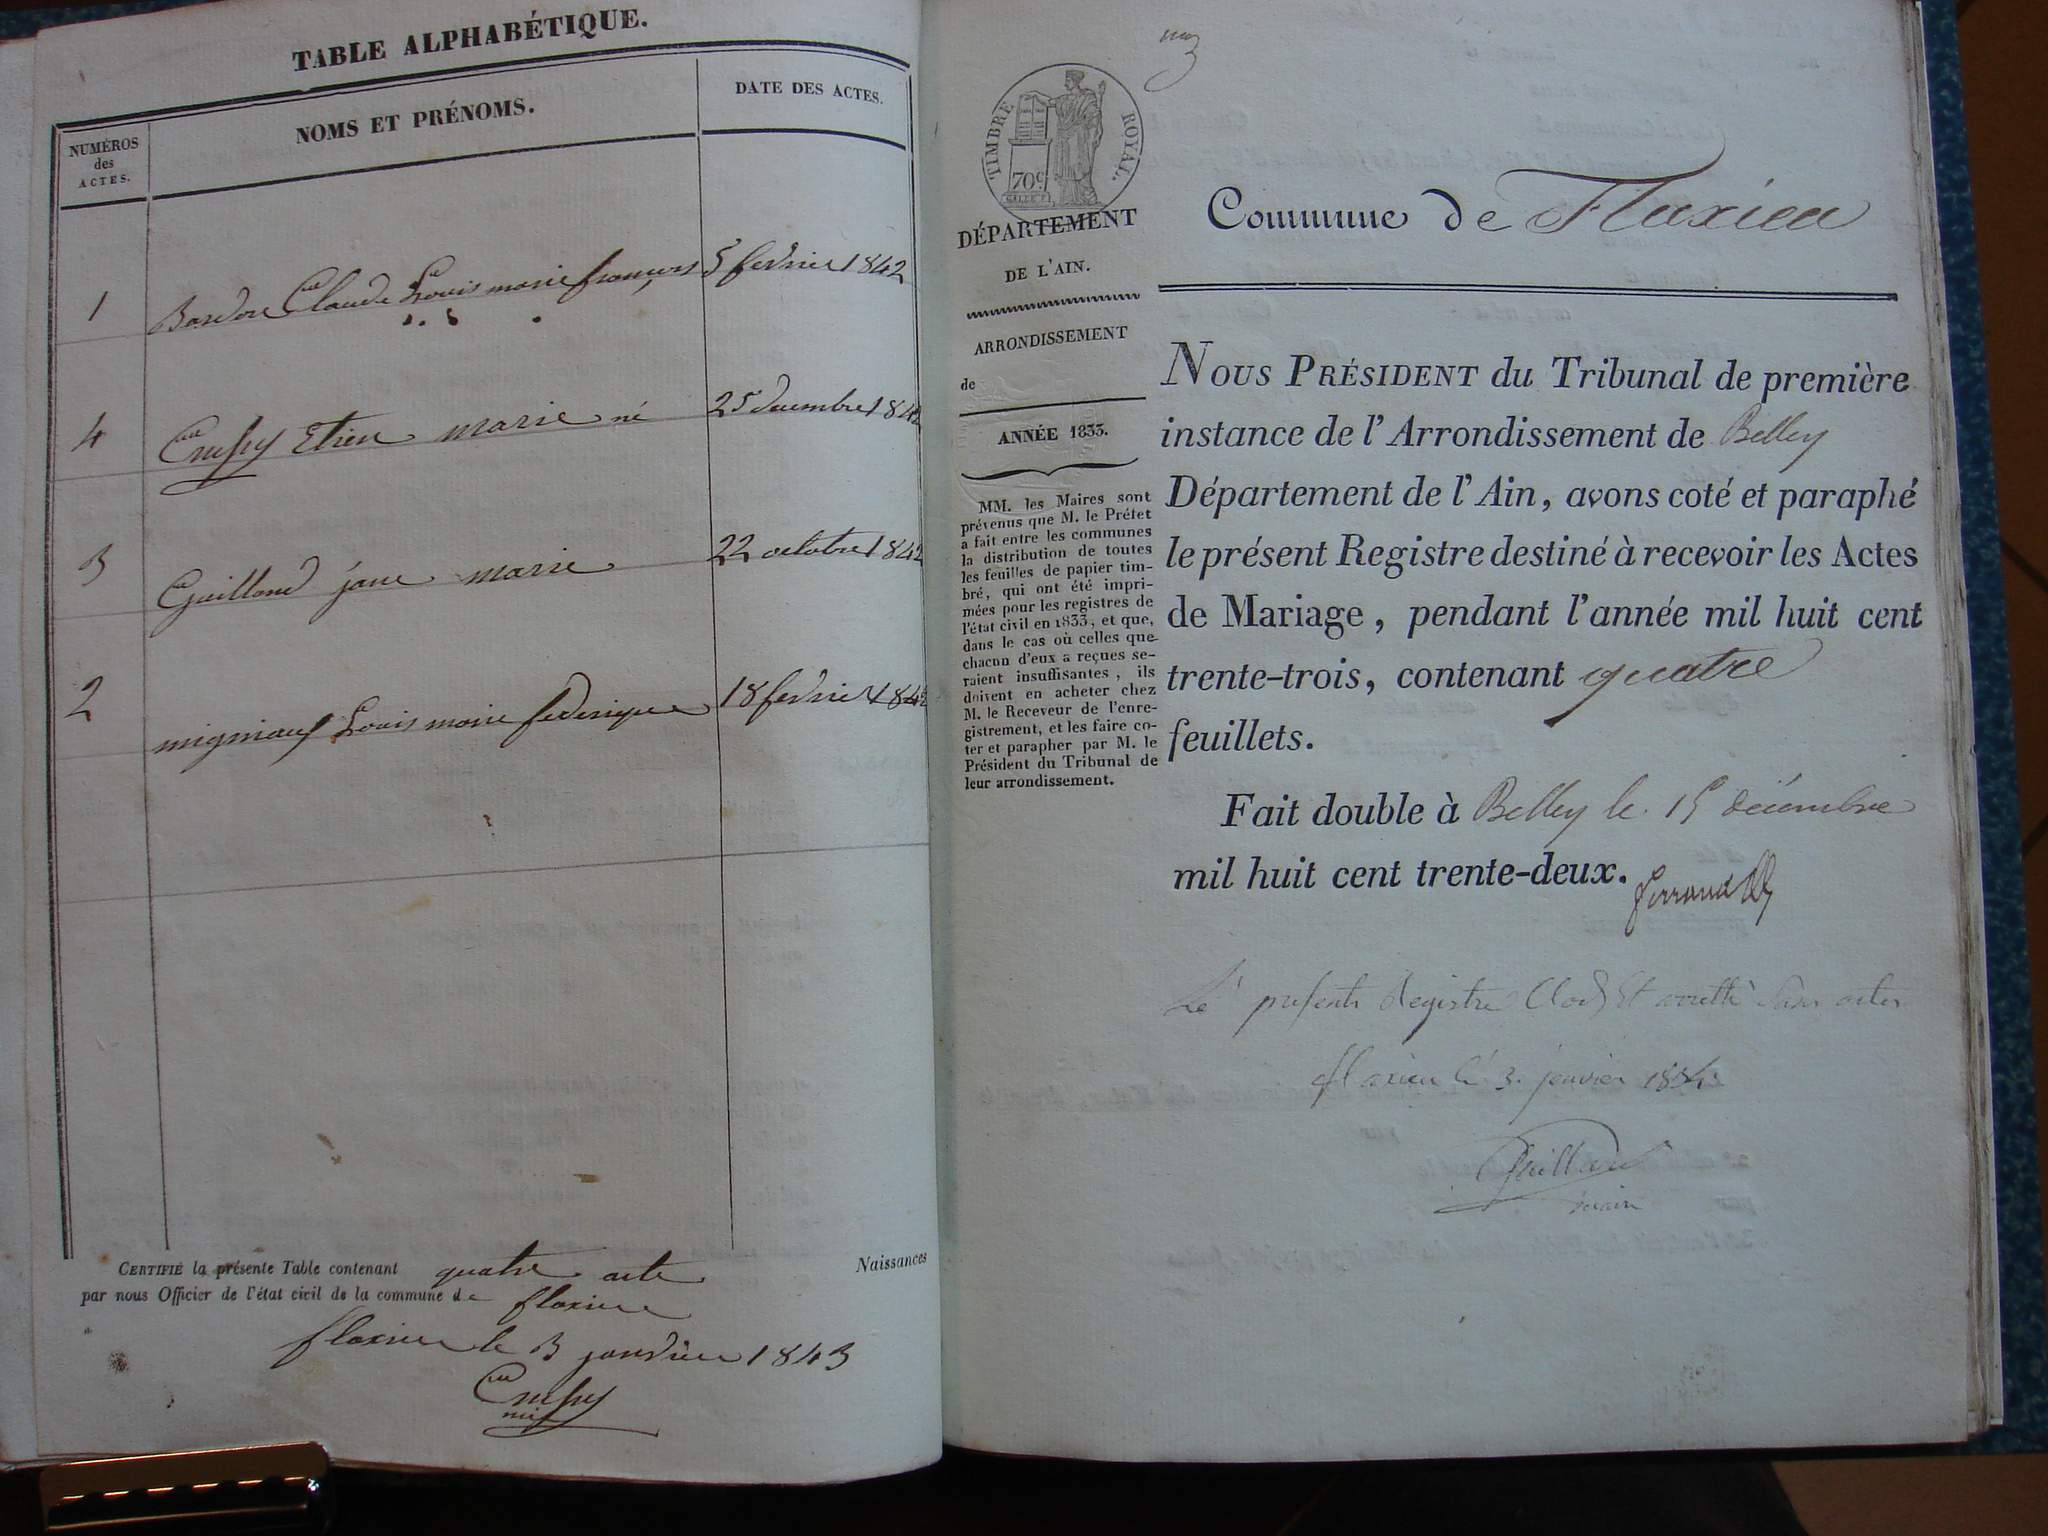 TABLE ALPHABÉTIQUE.
NUMÉROS
des
ACTES.
NOMS ET PRÉNOMS.
DATE DES ACTES.
1 Bardon Claude Louis marie françois 5 fevrier 1842
4 Crussy Etien marie né 25 decembre 1842
3 Guilland jane marie 22 octobre 1842
2 Louis marie federique 18 fevrier 1842
CERTIFIÉ la présente Table contenant quatre acte Naissances
par nous Officier de l'état civil de la commune de flaxieu
flaxieu le 3 janvier 1843
TIMBRE ROYAL.
70c
DÉPARTEMENT
DE L'AIN.
ARRONDISSEMENT
de
ANNÉE 1833.
MM. les Maires sont
prévenus que M. le Préfet
a fait entre les communes
la distribution de toutes
les feuilles de papier tim-
bré, qui ont été impri-
mées pour les registres de
l'état civil en 1833, et que,
dans le cas où celles que
chacun d'eux a reçues se-
raient insuffisantes, ils
doivent en acheter chez
M. le Receveur de l'enre-
gistrement, et les faire co-
ter et parapher par M. le
Président du Tribunal de
leur arrondissement.
Commune de Flaxieu
NOUS PRÉSIDENT du Tribunal de première
instance de l'Arrondissement de Belley
Département de l'Ain, avons coté et paraphé
le présent Registre destiné à recevoir les Actes
de Mariage, pendant l'année mil huit cent
trente-trois, contenant quatre
feuillets.
Fait double à Belley le 15 décembre
mil huit cent trente-deux.
Le présents Registre Clos Et arretté Sans actes
flaxieu le 3. janvier 1834
Guilland
maire